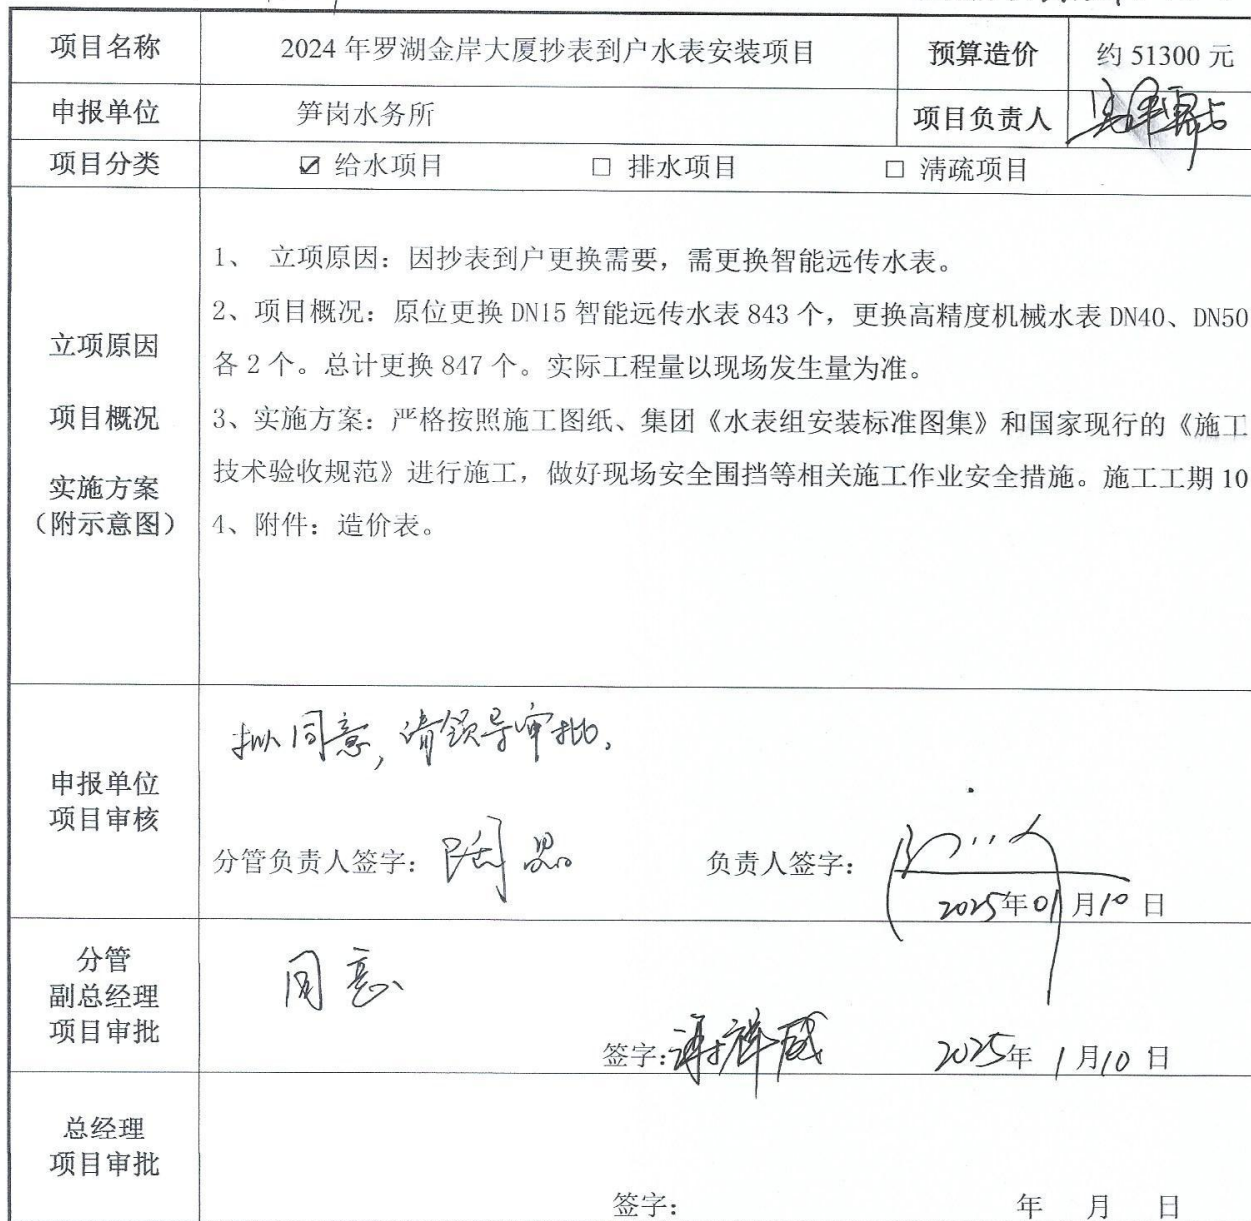 项目名称 2024年罗湖金岸大厦抄表到户水表安装项目 预算造价 约 51300 元
申报单位 笋岗水务所 项目负责人
项目分类 ☑ 给水项目 □ 排水项目 □ 清疏项目
1、 立项原因：因抄表到户更换需要，需更换智能远传水表。
2、项目概况：原位更换 DN15 智能远传水表 843 个，更换高精度机械水表 DN40、DN50
各 2 个。总计更换 847 个。实际工程量以现场发生量为准。
3、实施方案：严格按照施工图纸、集团《水表组安装标准图集》和国家现行的《施工
技术验收规范》进行施工，做好现场安全围挡等相关施工作业安全措施。施工工期 10
4、附件：造价表。
立项原因
项目概况
实施方案
（附示意图）
申报单位
项目审核
拟同意，请领导审批。
分管负责人签字： 负责人签字：
2025年01月10日
分管
副总经理
项目审批
同意
签字： 2025年1月10日
总经理
项目审批
签字： 年 月 日